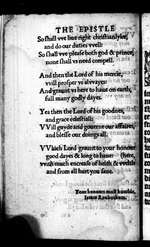 THE EPISTLE
So shall we liue right christianlyke,
and do our duties well:
So shall we please both god & prince,
none shall vs need compell.
And then the Lord of his mercie,
will prosper vs alwayes:
And graunt vs here to haue on earth,
full many godly dayes.
Yea then the Lord of his goodnes,
and grace celestiall:
VVill guyde and gouerne our affaires,
and blesse our doings all.
VVhich Lord graunt to your honour
good dayes & long to haue
with much encrease of helth & welth
and from all hurt you saue.
Your honours most humble,